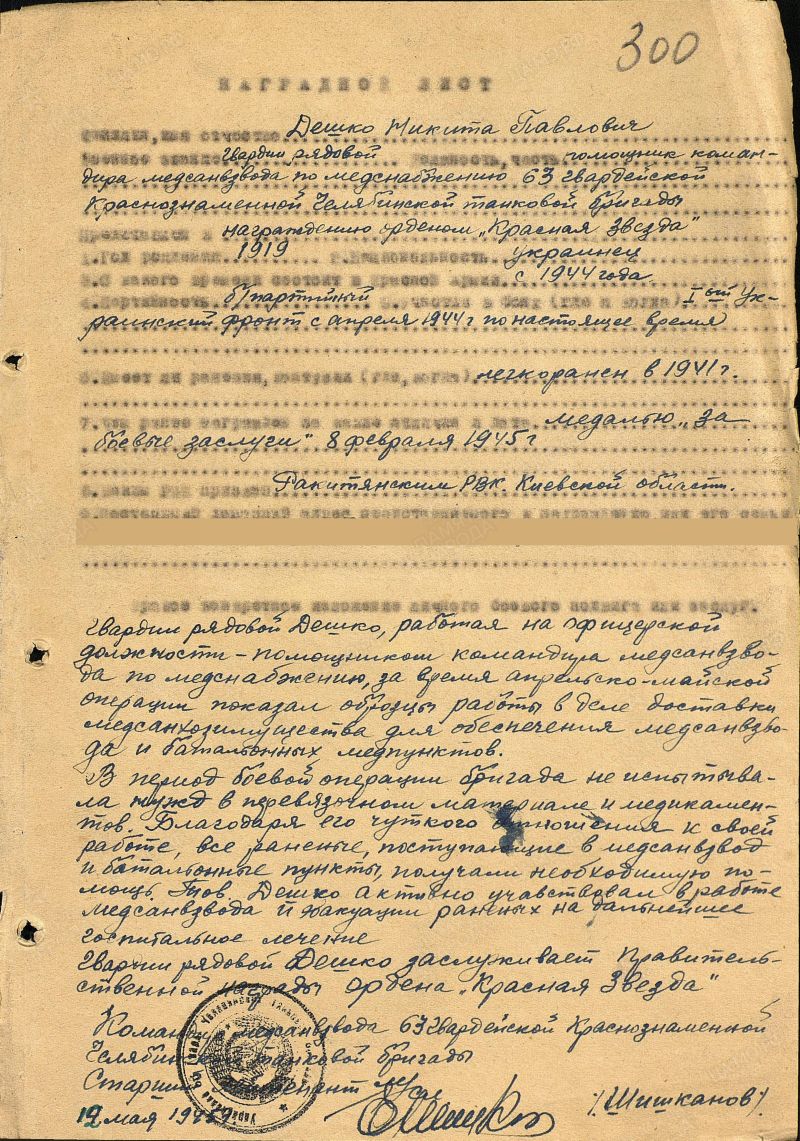 300
НАГРАДНОЙ ЛИСТ
Фамилия, имя отчество Дешко Никита Павлович
Военное звание гвардии рядовой Должность, часть помощник коман-
дира медсанвзвода по медснабжению 63 гвардейской
Краснознаменной Челябинской танковой бригады
Представлен к награждению орденом „Красная Звезда"
1. Год рождения 1919 2. Национальность украинец
3. С какого времени состоит в Красной Армии с 1944 года
4. Партийность б/партийный 5. Участие в боях (где и когда) I ый Ук-
раинский фронт с апреля 1944 г по настоящее время
6. Имеет ли ранения, контузии (где, когда) легко ранен в 1941 г.
7. Чем ранее награжден за какие отличия и дата медалью „За
боевые заслуги" 8 февраля 1945 г
8. Каким РВК призван Ракитянским РВК. Киевской области.
9. Постоянный домашний адрес представляемого к награждению или его семьи
Краткое конкретное изложение личного боевого подвига или заслуг.
Гвардии рядовой Дешко, работая на офицерской
должности - помощником командира медсанвзво-
да по медснабжению, за время апрельско-майской
операции показал образцы работы в деле доставки
медсанхозимущества для обеспечения медсанвзво-
да и батальонных медпунктов.
В период боевой операции бригада не испытыва-
ла нужд в перевязочном материале и медикамен-
тов. Благодаря его чуткого отношения к своей
работе, все раненые, поступающие в медсанвзвод
и батальонные пункты, получали необходимую по-
мощь. Тов. Дешко активно учавствовал в работе
медсанвзвода и эвакуации раненых на дальнейшее
госпитальное лечение
Гвардии рядовой Дешко заслуживает Правитель-
ственной награды ордена „Красная Звезда"
Команд медсанвзвода 63 Гвардейской Краснознаменной
Челябинской танковой бригады
Старший лейтенант м/сл
/Шишканов/.
19 мая 1945 г